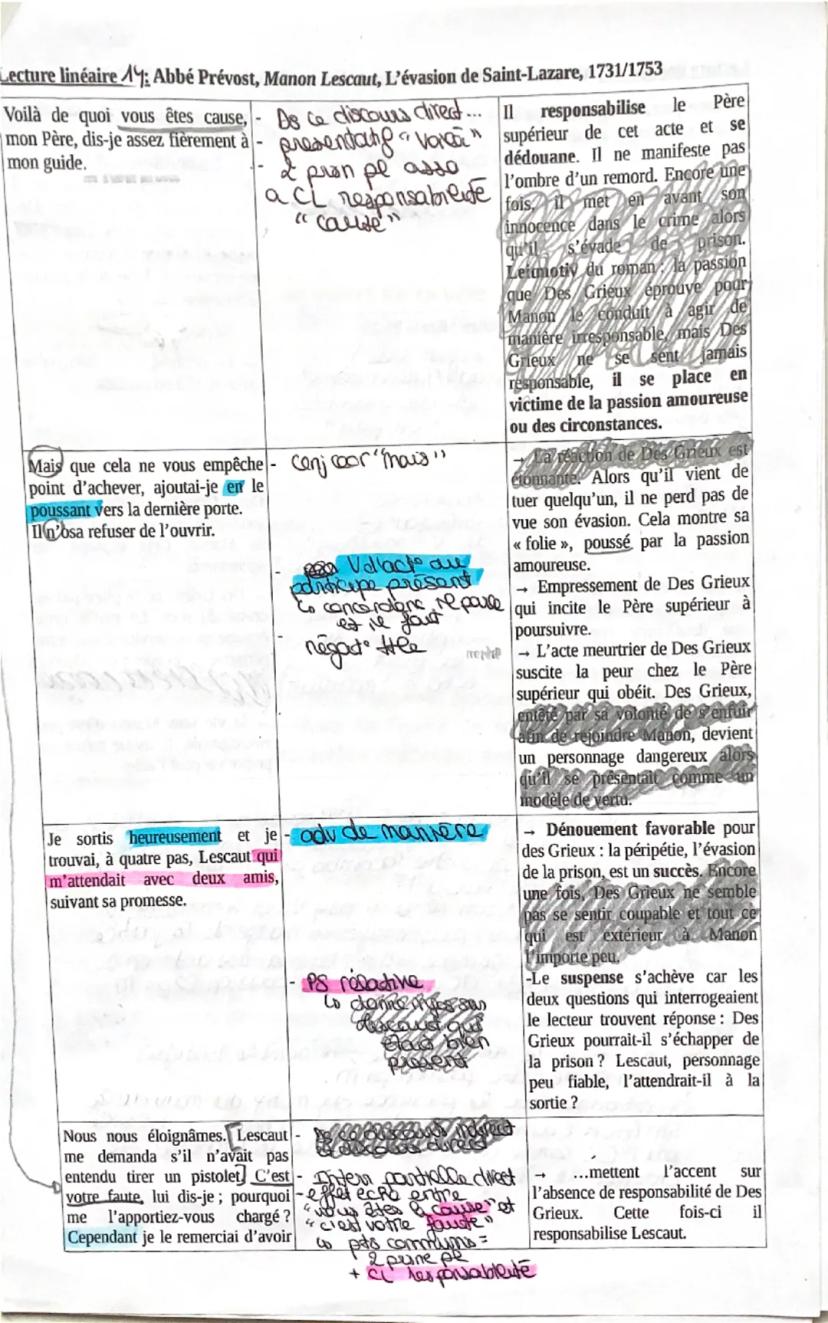 Lecture linéaire 14: Abbé Prévost, Manon Lescaut, L'évasion de Saint-Lazare, 1731/1753
Voilà de quoi vous êtes cause,
mon Père, dis-je assez fièrement à
mon guide.
- Ds ce discours direct...
- présentatif "voilà"
- 2 pron pe asso
a CL responsabilité
"cause"
Il responsabilise le Père
supérieur de cet acte et se
dédouane. Il ne manifeste pas
l'ombre d'un remord. Encore une
fois, il met en avant son
innocence dans le crime alors
qu'il s'évade de prison.
Leitmotiv du roman : la passion
que Des Grieux éprouve pour
Manon le conduit à agir de
manière irresponsable, mais Des
Grieux ne se sent jamais
responsable, il se place en
victime de la passion amoureuse
ou des circonstances.
Mais que cela ne vous empêche
point d'achever, ajoutai-je en le
poussant vers la dernière porte.
Il n'osa refuser de l'ouvrir.
- conj coor "mais"
- V d'act° au
participe présent
négat° tle
→ La réaction de Des Grieux est
étonnante. Alors qu'il vient de
tuer quelqu'un, il ne perd pas de
vue son évasion. Cela montre sa
« folie », poussé par la passion
amoureuse.
→ Empressement de Des Grieux
qui incite le Père supérieur à
poursuivre.
→ L'acte meurtrier de Des Grieux
suscite la peur chez le Père
supérieur qui obéit. Des Grieux,
entêté par sa volonté de s'enfuir
afin de rejoindre Manon, devient
un personnage dangereux alors
qu'il se présentait comme un
modèle de vertu.
Je sortis heureusement et je
trouvai, à quatre pas, Lescaut qui
m'attendait avec deux amis,
suivant sa promesse.
- adv de manière
- PS relative
Lescaut qui
était bien
présent
→ Dénouement favorable pour
des Grieux : la péripétie, l'évasion
de la prison, est un succès. Encore
une fois, Des Grieux ne semble
pas se sentir coupable et tout ce
qui est extérieur à Manon
l'importe peu.
-Le suspense s'achève car les
deux questions qui interrogeaient
le lecteur trouvent réponse : Des
Grieux pourrait-il s'échapper de
la prison ? Lescaut, personnage
peu fiable, l'attendrait-il à la
sortie ?
Nous nous éloignâmes. [Lescaut
me demanda s'il n'avait pas
entendu tirer un pistolet.] C'est
votre faute, lui dis-je ; pourquoi
me l'apportiez-vous chargé ?
Cependant je le remerciai d'avoir
- Interro partielle direct
- effet écho entre
"vous êtes la cause" et
"c'est votre faute"
↳ pts communs =
2 pers
+ CL responsabilité
→ ...mettent l'accent sur
l'absence de responsabilité de Des
Grieux. Cette fois-ci il
responsabilise Lescaut.